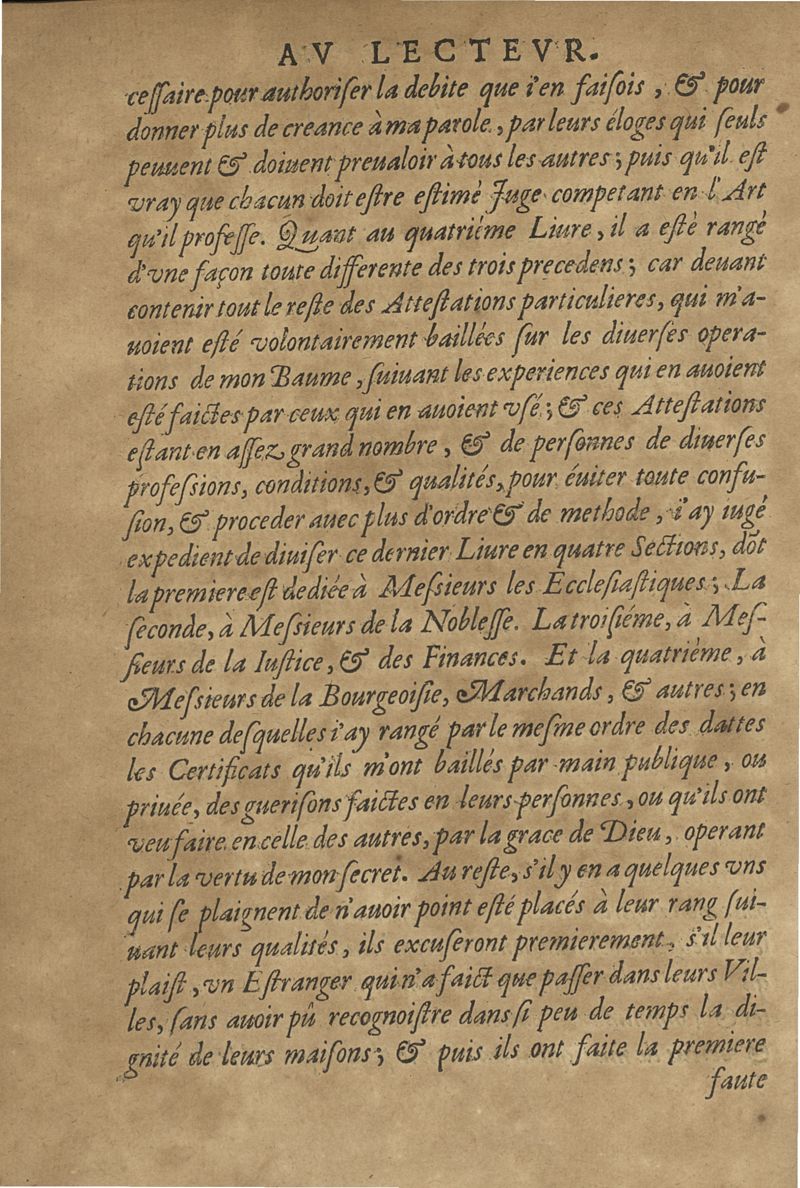 AV LECTEVR.
ceſſaire pour authoriſer la debite que i'en faiſois, & pour
donner plus de creance à ma parole, par leurs éloges qui ſeuls
peuuent & doiuent preualoir à tous les autres; puis qu'il eſt
vray que chacun doit eſtre eſtimé Juge competant en l'Art
qu'il profeſſe. Quant au quatriéme Liure, il a eſté rangé
d'vne façon toute differente des trois precedens; car deuant
contenir tout le reſte des Atteſtations particulieres, qui m'a-
uoient eſté volontairement baillées ſur les diuerſes opera-
tions de mon Baume, ſuiuant les experiences qui en auoient
eſté faictes par ceux qui en auoient vſé; & ces Atteſtations
eſtant en aſſez grand nombre, & de perſonnes de diuerſes
profeſsions, conditions, & qualités, pour éuiter toute confu-
ſion, & proceder auec plus d'ordre & de methode, i'ay iugé
expedient de diuiſer ce dernier Liure en quatre Sections, dõt
la premiere eſt dediée à Meſsieurs les Eccleſiaſtiques; La
ſeconde, à Meſsieurs de la Nobleſſe. La troiſiéme, à Meſ-
ſieurs de la Iuſtice, & des Finances. Et la quatriéme, à
Meſsieurs de la Bourgeoiſie, Marchands, & autres; en
chacune deſquelles i'ay rangé par le meſme ordre des dattes
les Certificats qu'ils m'ont baillés par main publique, ou
priuée, des gueriſons faictes en leurs perſonnes, ou qu'ils ont
veu faire en celle des autres, par la grace de Dieu, operant
par la vertu de mon ſecret. Au reſte, s'il y en a quelques vns
qui ſe plaignent de n'auoir point eſté placés à leur rang ſui-
uant leurs qualités, ils excuſeront premierement, s'il leur
plaiſt, vn Eſtranger qui n'a faict que paſſer dans leurs Vil-
les, ſans auoir pû recognoiſtre dans ſi peu de temps la di-
gnité de leurs maiſons; & puis ils ont faite la premiere
faute